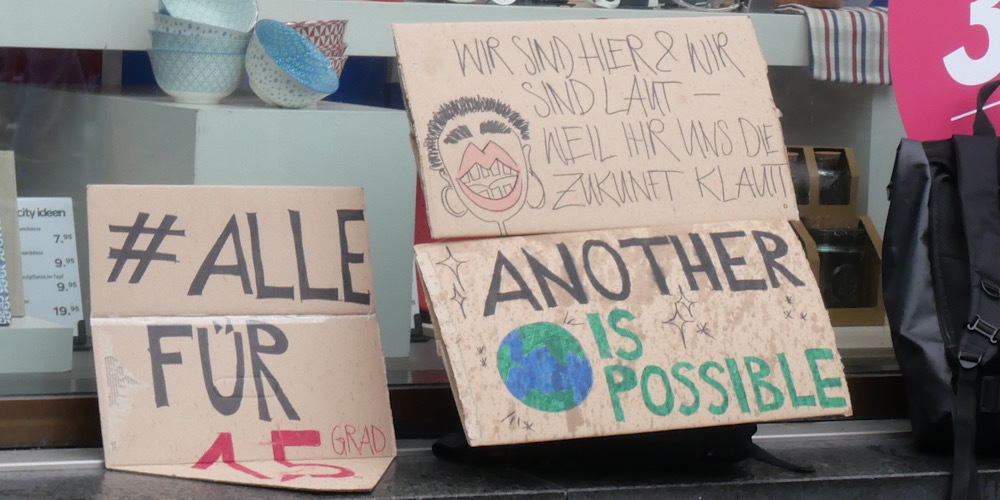 #ALLE
FÜR
1,5 GRAD
WIR SIND HIER & WIR
SIND LAUT –
WEIL IHR UNS DIE
ZUKUNFT KLAUT!
ANOTHER
IS
POSSIBLE
city ideen
7.95
9.95
9.95
19.95
3